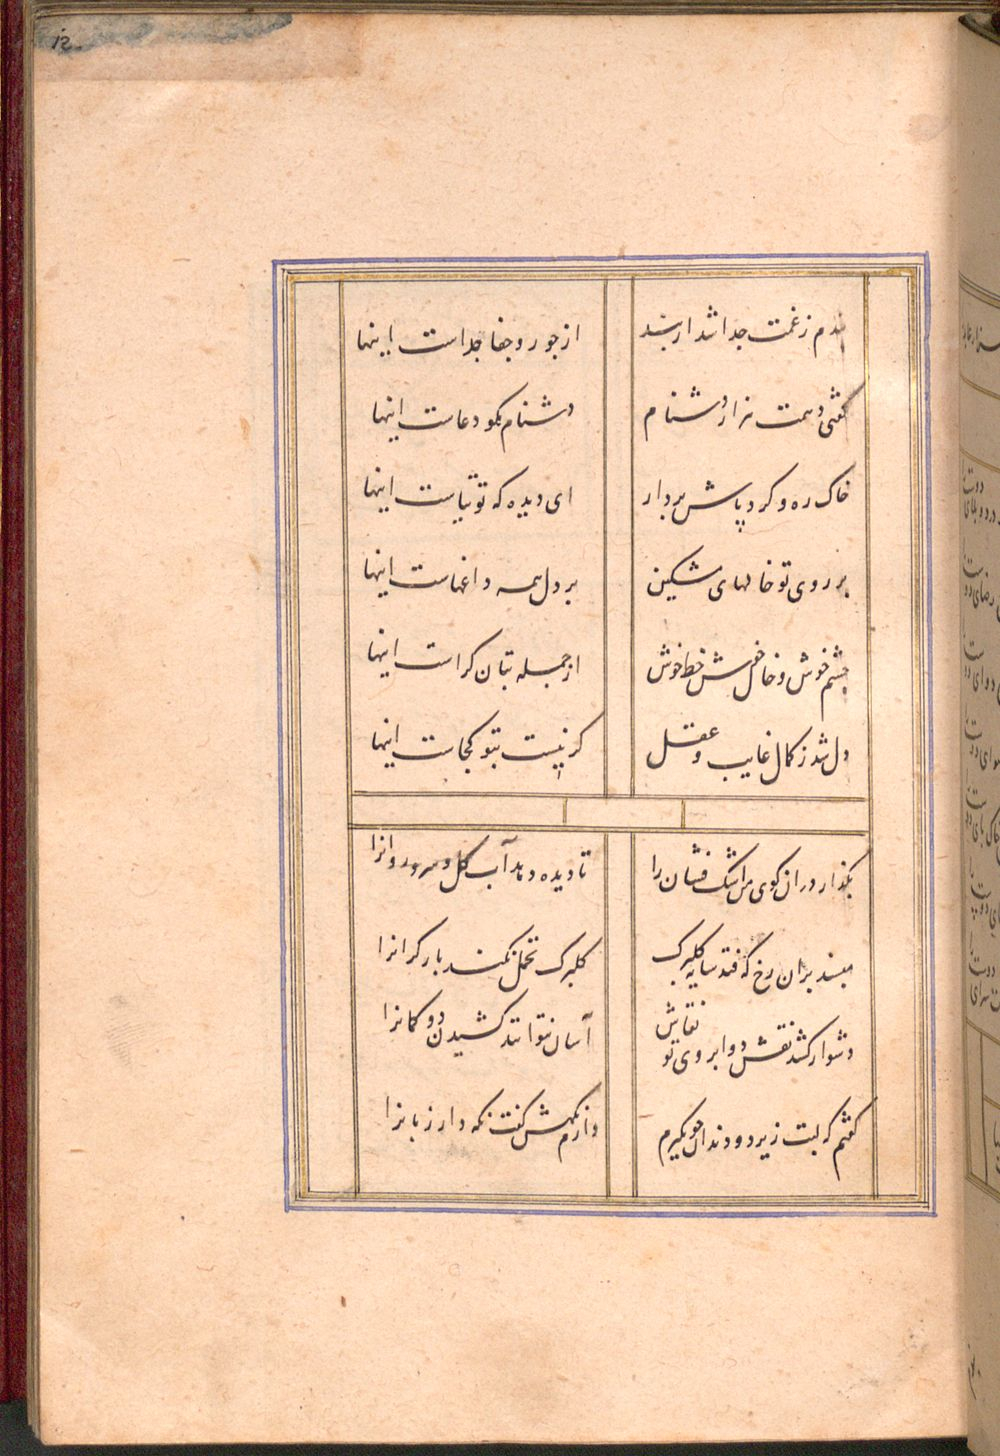 12
بندم ز غمت جدا شد از بند
از جور و جفا جداست اینها
گفتی دهمت هزار دشنام
دشنام مگو دعاست اینها
خاک ره و گرد پاش بردار
ای دیده که توتیاست اینها
بر روی تو خالهای مشکین
بر دل همه داغهاست اینها
چشم خوش و خال خوش خط خوش
از جمله بتان کراست اینها
دل شد ز کمال غایب و عقل
گر نیست بتو کجاست اینها
بگذار در آن کوی من اشک فشان را
تا دیده دهد آب گل و سرو روانرا
مپسند بران رخ که فتد سایه گلبرگ
گلبرک تحمل نکند بار گرانرا
دشوار کشد نقش دو ابروی تو نقاش
آسان نتوانند کشیدن دو کمانرا
گفتم که لبت زیر دو دندان چو بگیرم
دارم نگهش گفت نگه دار زبانرا